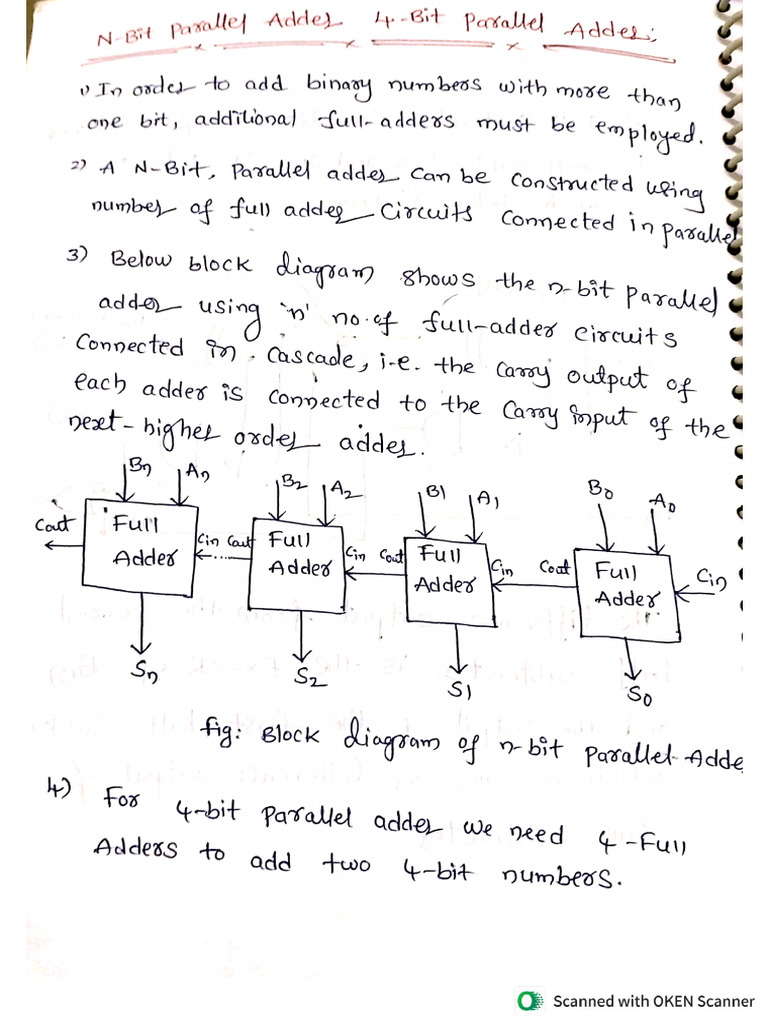 N-Bit Parallel Adder 4-Bit Parallel Adder:
1) In order to add binary numbers with more than
one bit, additional full-adders must be employed.
2) A N-Bit, Parallel adder can be constructed using
number of full adder circuits connected in parallel
3) Below block diagram shows the n-bit parallel
adder using 'n' no.of full-adder circuits
connected in cascade, i.e. the carry output of
each adder is connected to the carry input of the
next-higher order adder.
Bn An B2 A2 B1 A1 B0 A0
Cout Full Adder Cin Cout Full Adder Cin Cout Full Adder Cin Cout Full Adder Cin
Sn S2 S1 S0
fig: Block diagram of n-bit parallel-Adde
4) For 4-bit parallel adder we need 4-Full
Adders to add two 4-bit numbers.
Scanned with OKEN Scanner